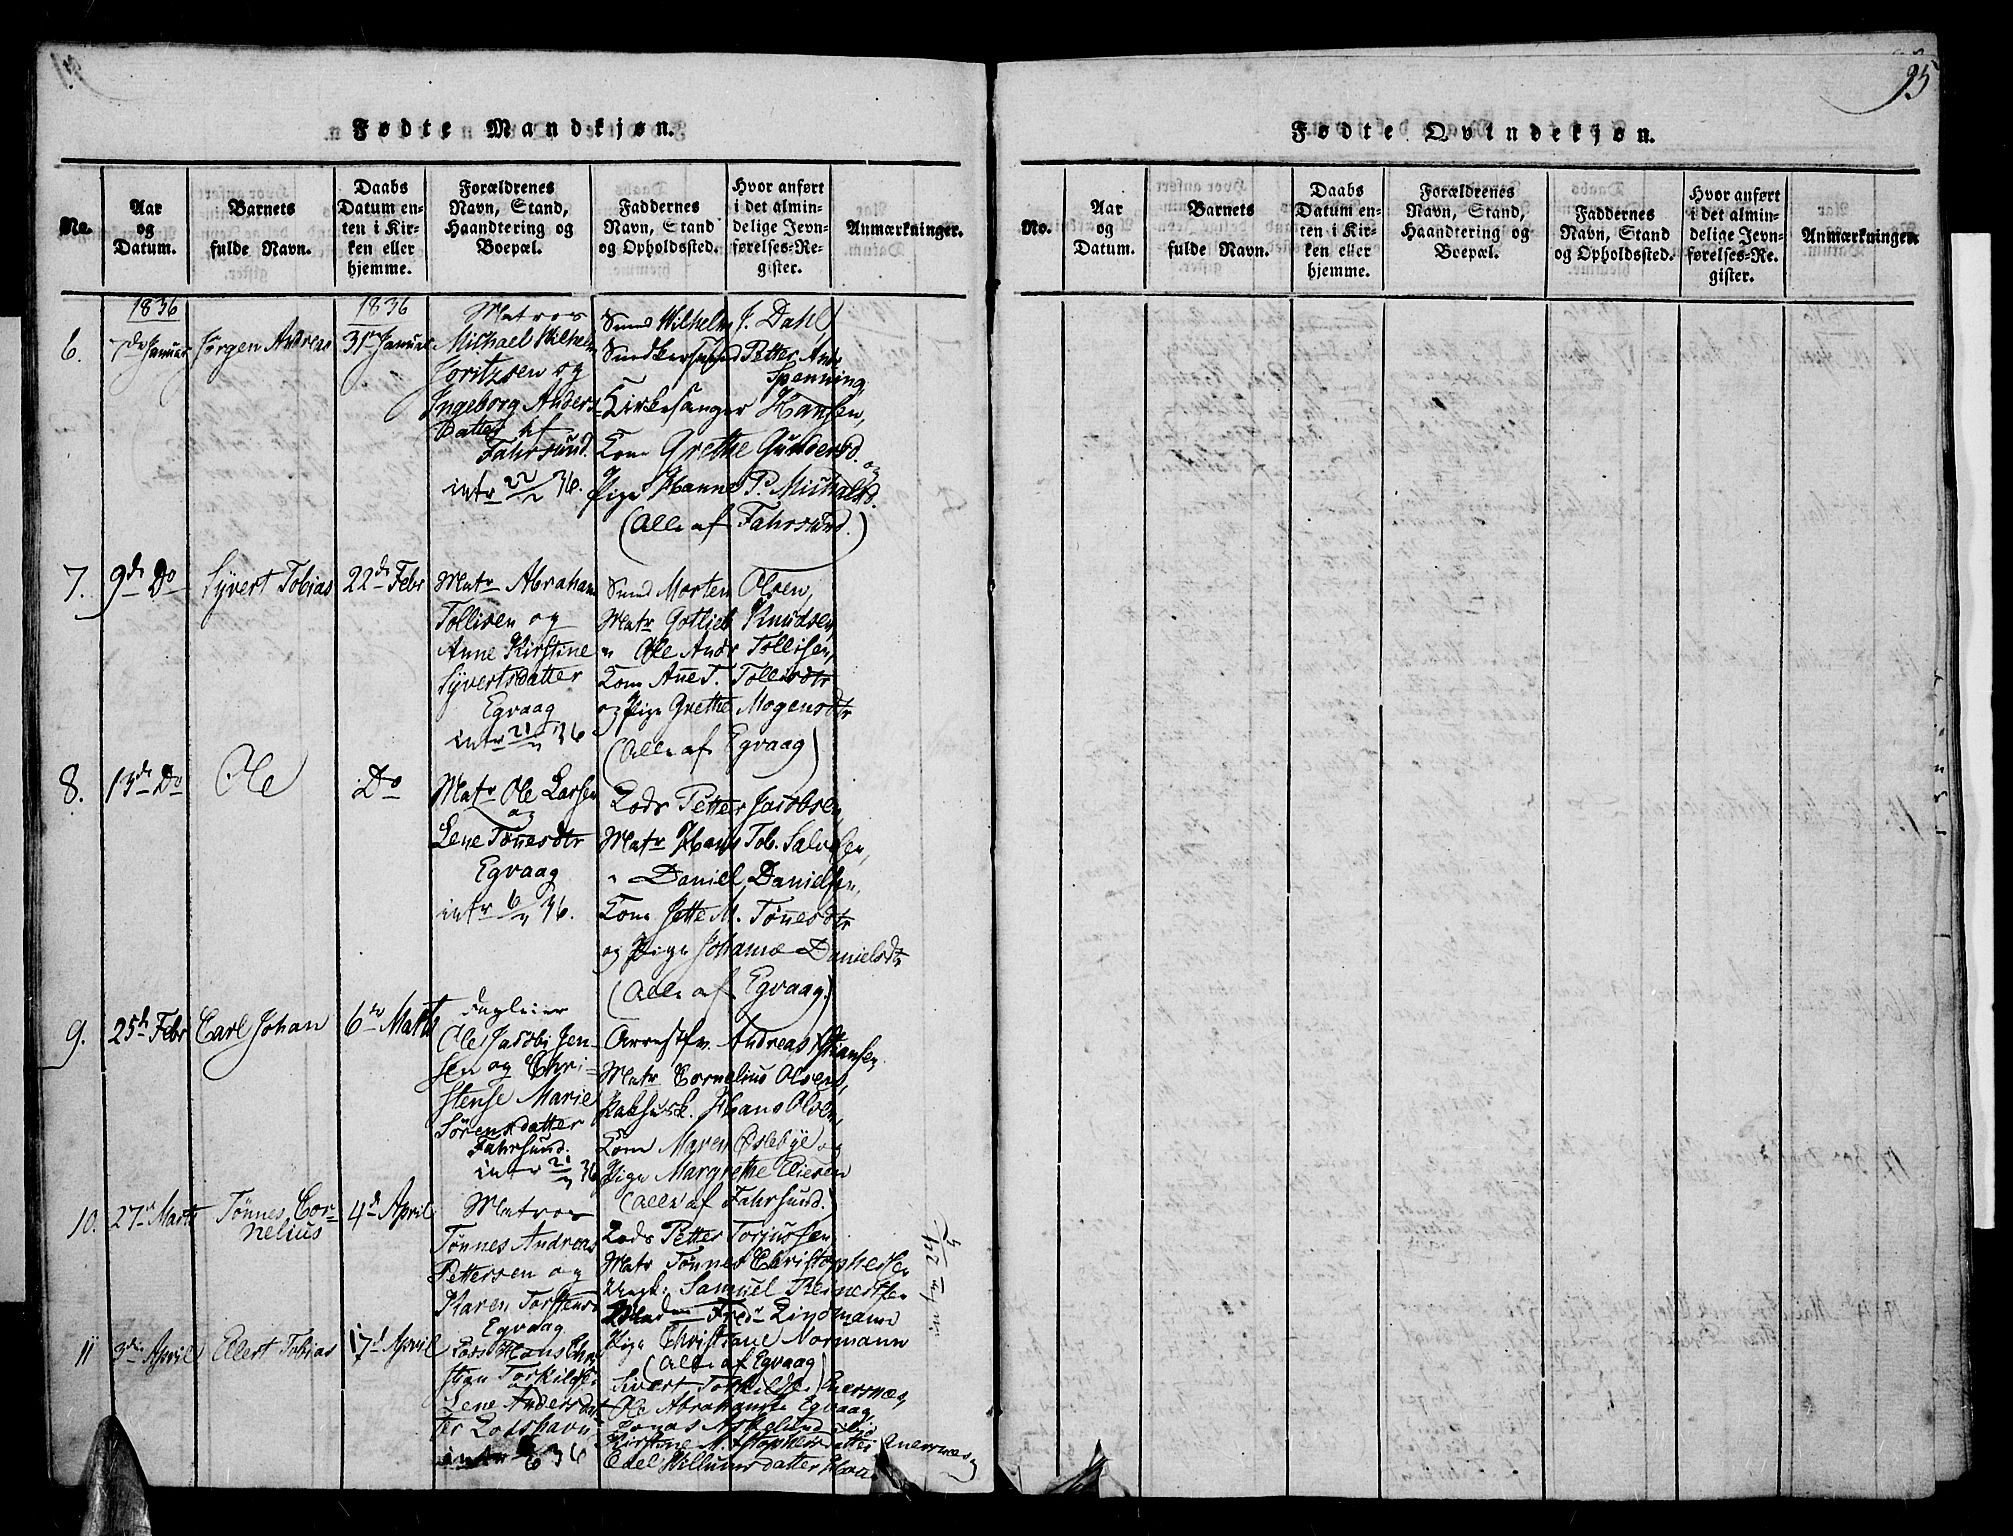 95
Fødte Mandkjøn.
No.
Aar
og
Datum.
Barnets
fulde Navn.
Daabs
Datum en-
ten i Kir-
ken eller
hjemme.
Forældrenes
Navn, Stand,
Haandtering og
Boepæl.
Faddernes
Navn, Stand
og Opholdssted.
Hvor anført
i det almin-
delige Jevn-
førelses-Re-
gister.
Anmærkninger.
6.
1836
7de Januar
Jørgen Andreas
1836
31te Januar
Matros
Michael Wilhelm
Goritzsen og
Ingeborg Anders
Datter af
Fahrsund.
intr 22/2 36.
Smed Wilhelm J. Dahl
Petter Andr
Spenning
Kirkesanger Hansen,
Kone Grethe Gundersd.
og
Pige Hanne P. Michalsd.
(Alle af Fahrsund.)
7.
9de Do
Syvert Tobias
22de Febr
Matr Abraham
Tollisen og
Anne Kirstine
Syvertsdatter
Egvaag
intr 21/2 36
Smed Morten Olsen,
Matr Gotlieb Knudsen,
" Ole Andr Tollisen,
Kone Anne T. Tollisdtr
og Pige Grethe Mogensdtr
(Alle af Egvaag)
8.
13de Do
Ole
Do
Matr Ole Larsen
og
Lene Tønnesdtr
Egvaag
intr 6/3 36.
Lods Petter Jacobsen,
Matr Hans Tob. Salvesen,
" Daniel Danielsen,
Kone Jette M. Tønnesdtr
og Pige Johanne Danielsdtr
(Alle af Egvaag.)
9.
25de Febr
Carl Johan
6te Marts
Dagleier
Ole Jacobi Jen-
sen og Chri-
stense Marie
Sørensdatter
Fahrsund.
intr 21/3 36
Arrestfv. Andreas Stiansen
Matr Cornelius Olsen,
Pakhusk. Hans Olsen,
Kone Maren Oslebye og
Pige Margrethe Eliesen
(Alle af Fahrsund.)
10.
27de Marts
Tønnes Cor-
nelius
4de April
Matros
Tønnes Andreas
Pettersen og
Karen Torstens
Egvaag
Lods Petter Torjussen
Matr Tønnes Christophersen
Ungk. Samuel Reinertsen
Fredr Lindmann
Pige Christiane Normann
(Alle af Egvaag)
11
3de April
Elert Tobias
17de April
Lods Hans Chri
stian Torkildsen
Lene Andersdat
ter Lodshavn
36
Sivert Torkildsen Euersnes
Ole Abrahamsen Egvaag,
Jonas
Kirstine M. Stophersdatter
Edel Willumsdatter
Fødte Qvindekjøn.
No.
Aar
og
Datum.
Barnets
fulde Navn.
Daabs
Datum en-
ten i Kir-
ken eller
hjemme.
Forældrenes
Navn, Stand,
Haandtering og
Boepæl.
Faddernes
Navn, Stand
og Opholdssted.
Hvor anført
i det almin-
delige Jevn-
førelses-Re-
gister.
Anmærkninger.